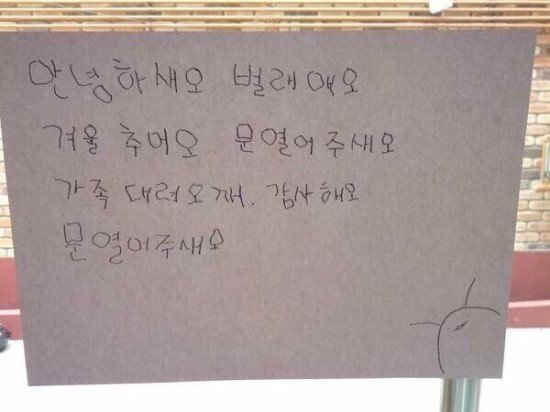 안녕하새오 벌래애오
겨울 추어오 문열어주새오
가족 대려오께. 감사해오
문열어주새오